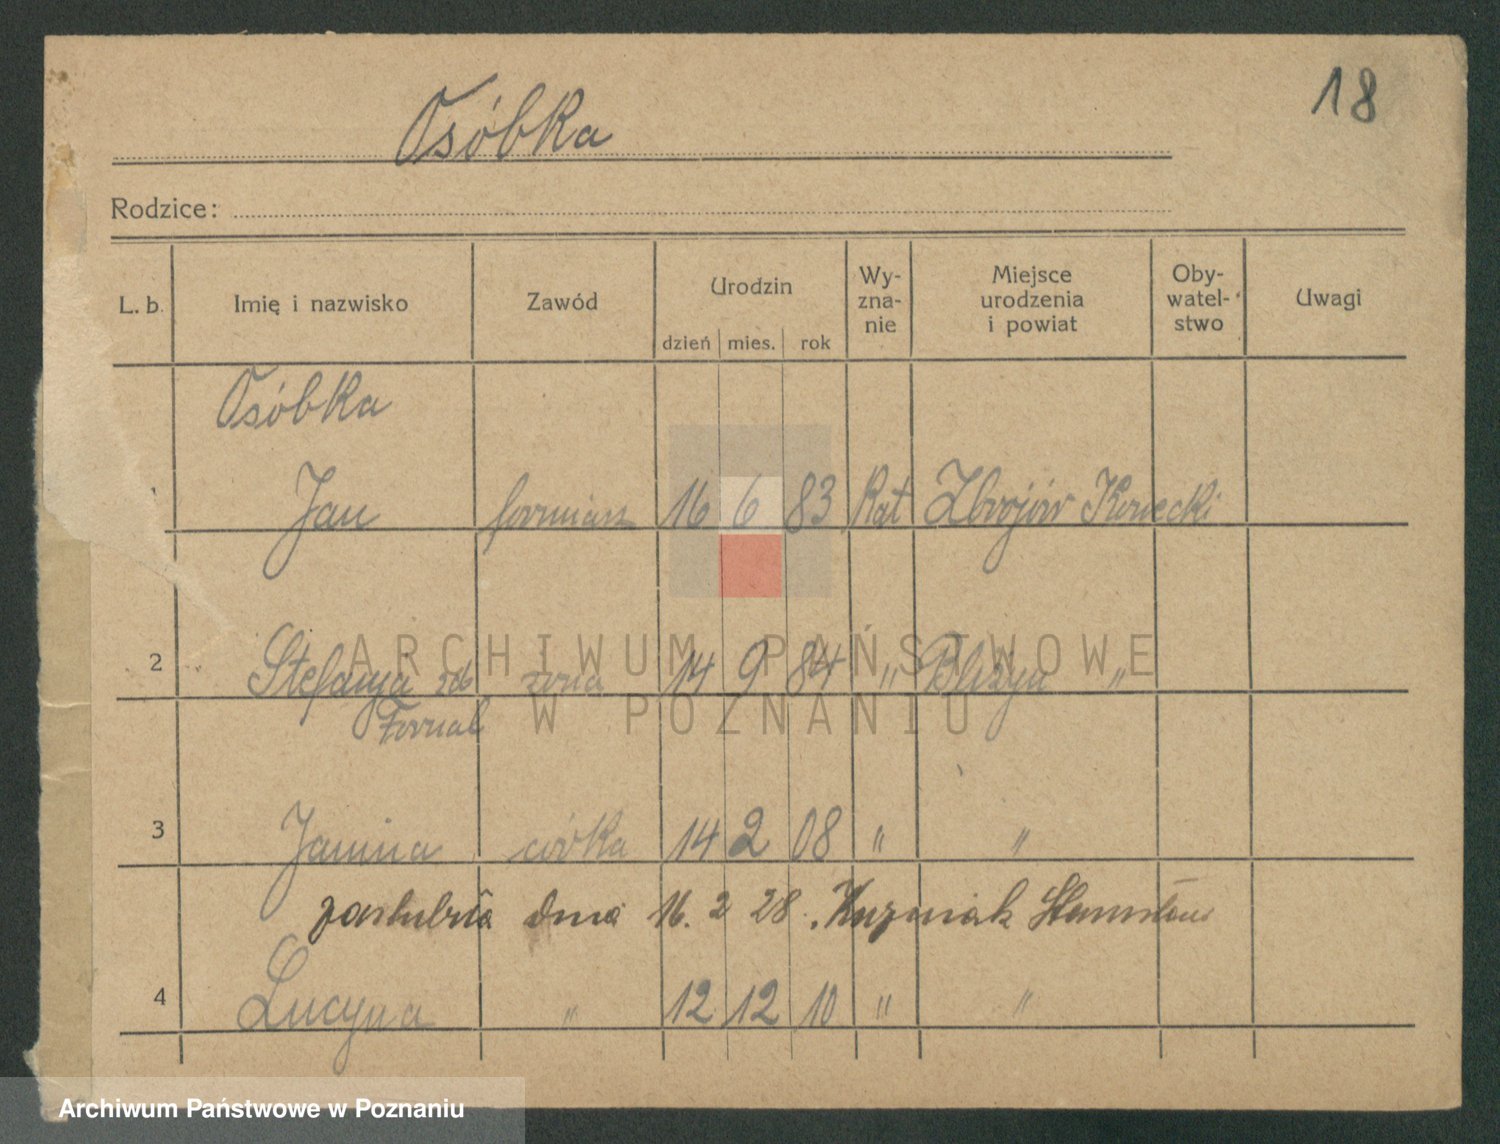 18
Osóbka
Rodzice:
L. b. Imię i nazwisko Zawód Urodzin Wy- Miejsce Oby- Uwagi
zna- urodzenia watel-
nie i powiat stwo
dzień mies. rok
Osóbka
1 Jan formiarz 16 6 83 Kat Zbrojów Konecki
2 Stefanja żona 14 9 84 " Bliżyn "
Fornal
3 Janina córka 14 2 08 " "
dnia 16. 2 28. Stanisław
4 Lucyna " 12 12 10 " "
ARCHIWUM PAŃSTWOWE
W POZNANIU
Archiwum Państwowe w Poznaniu